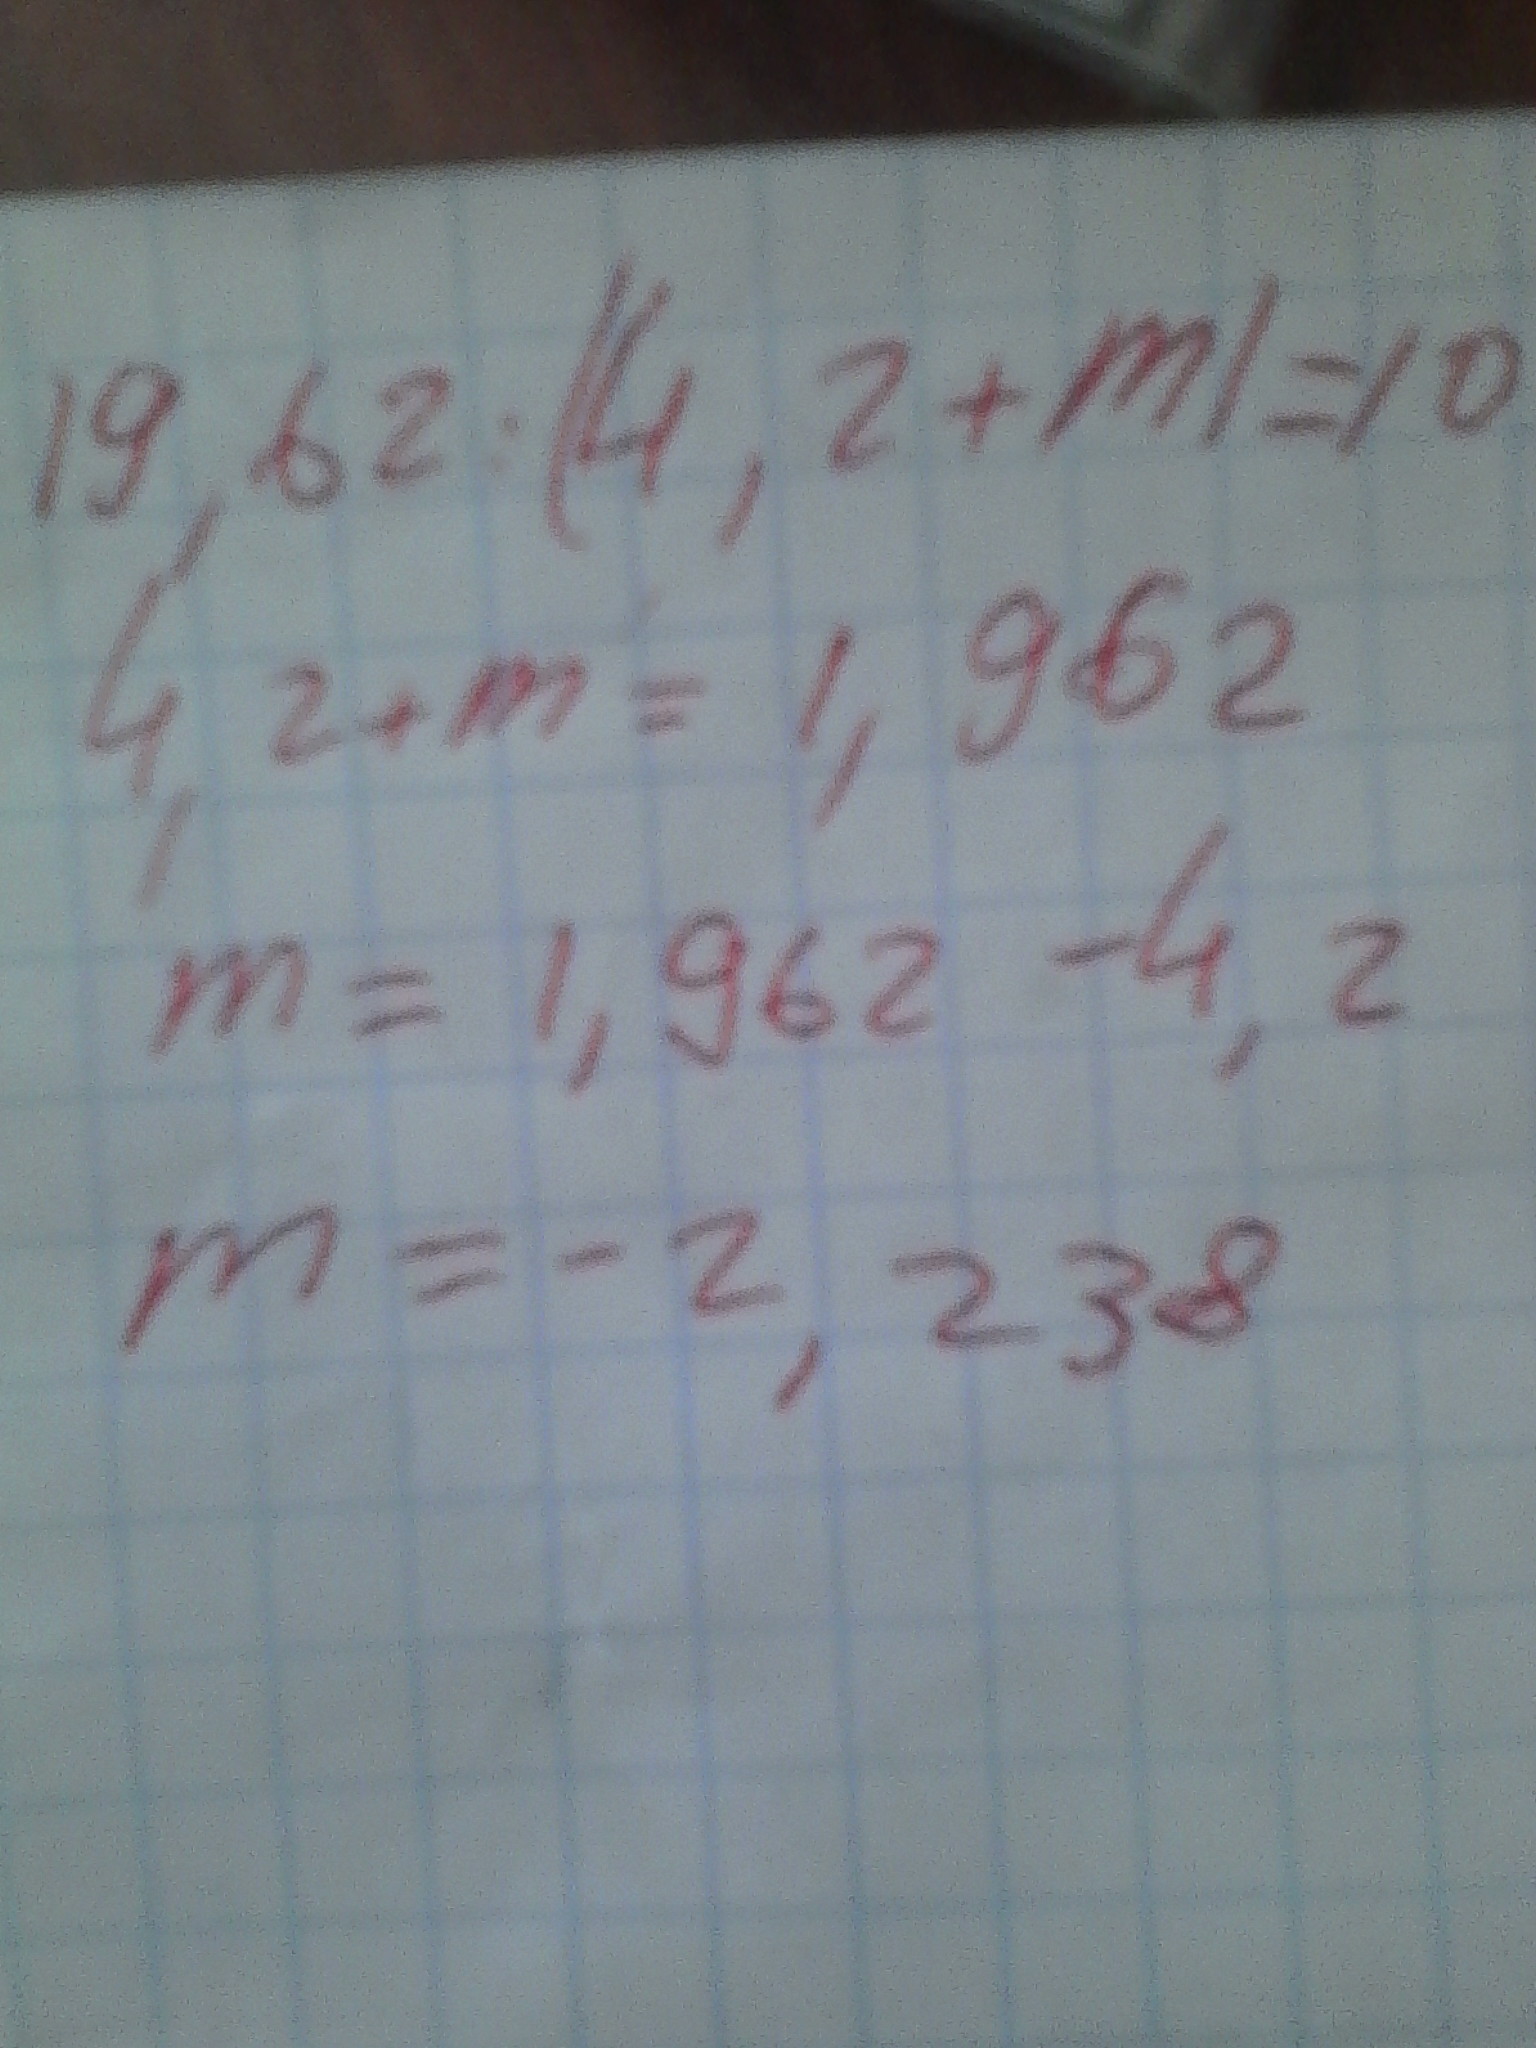 19,62:(4,2+m)=10
4,2+m=1,962
m=1,962-4,2
m=-2,238